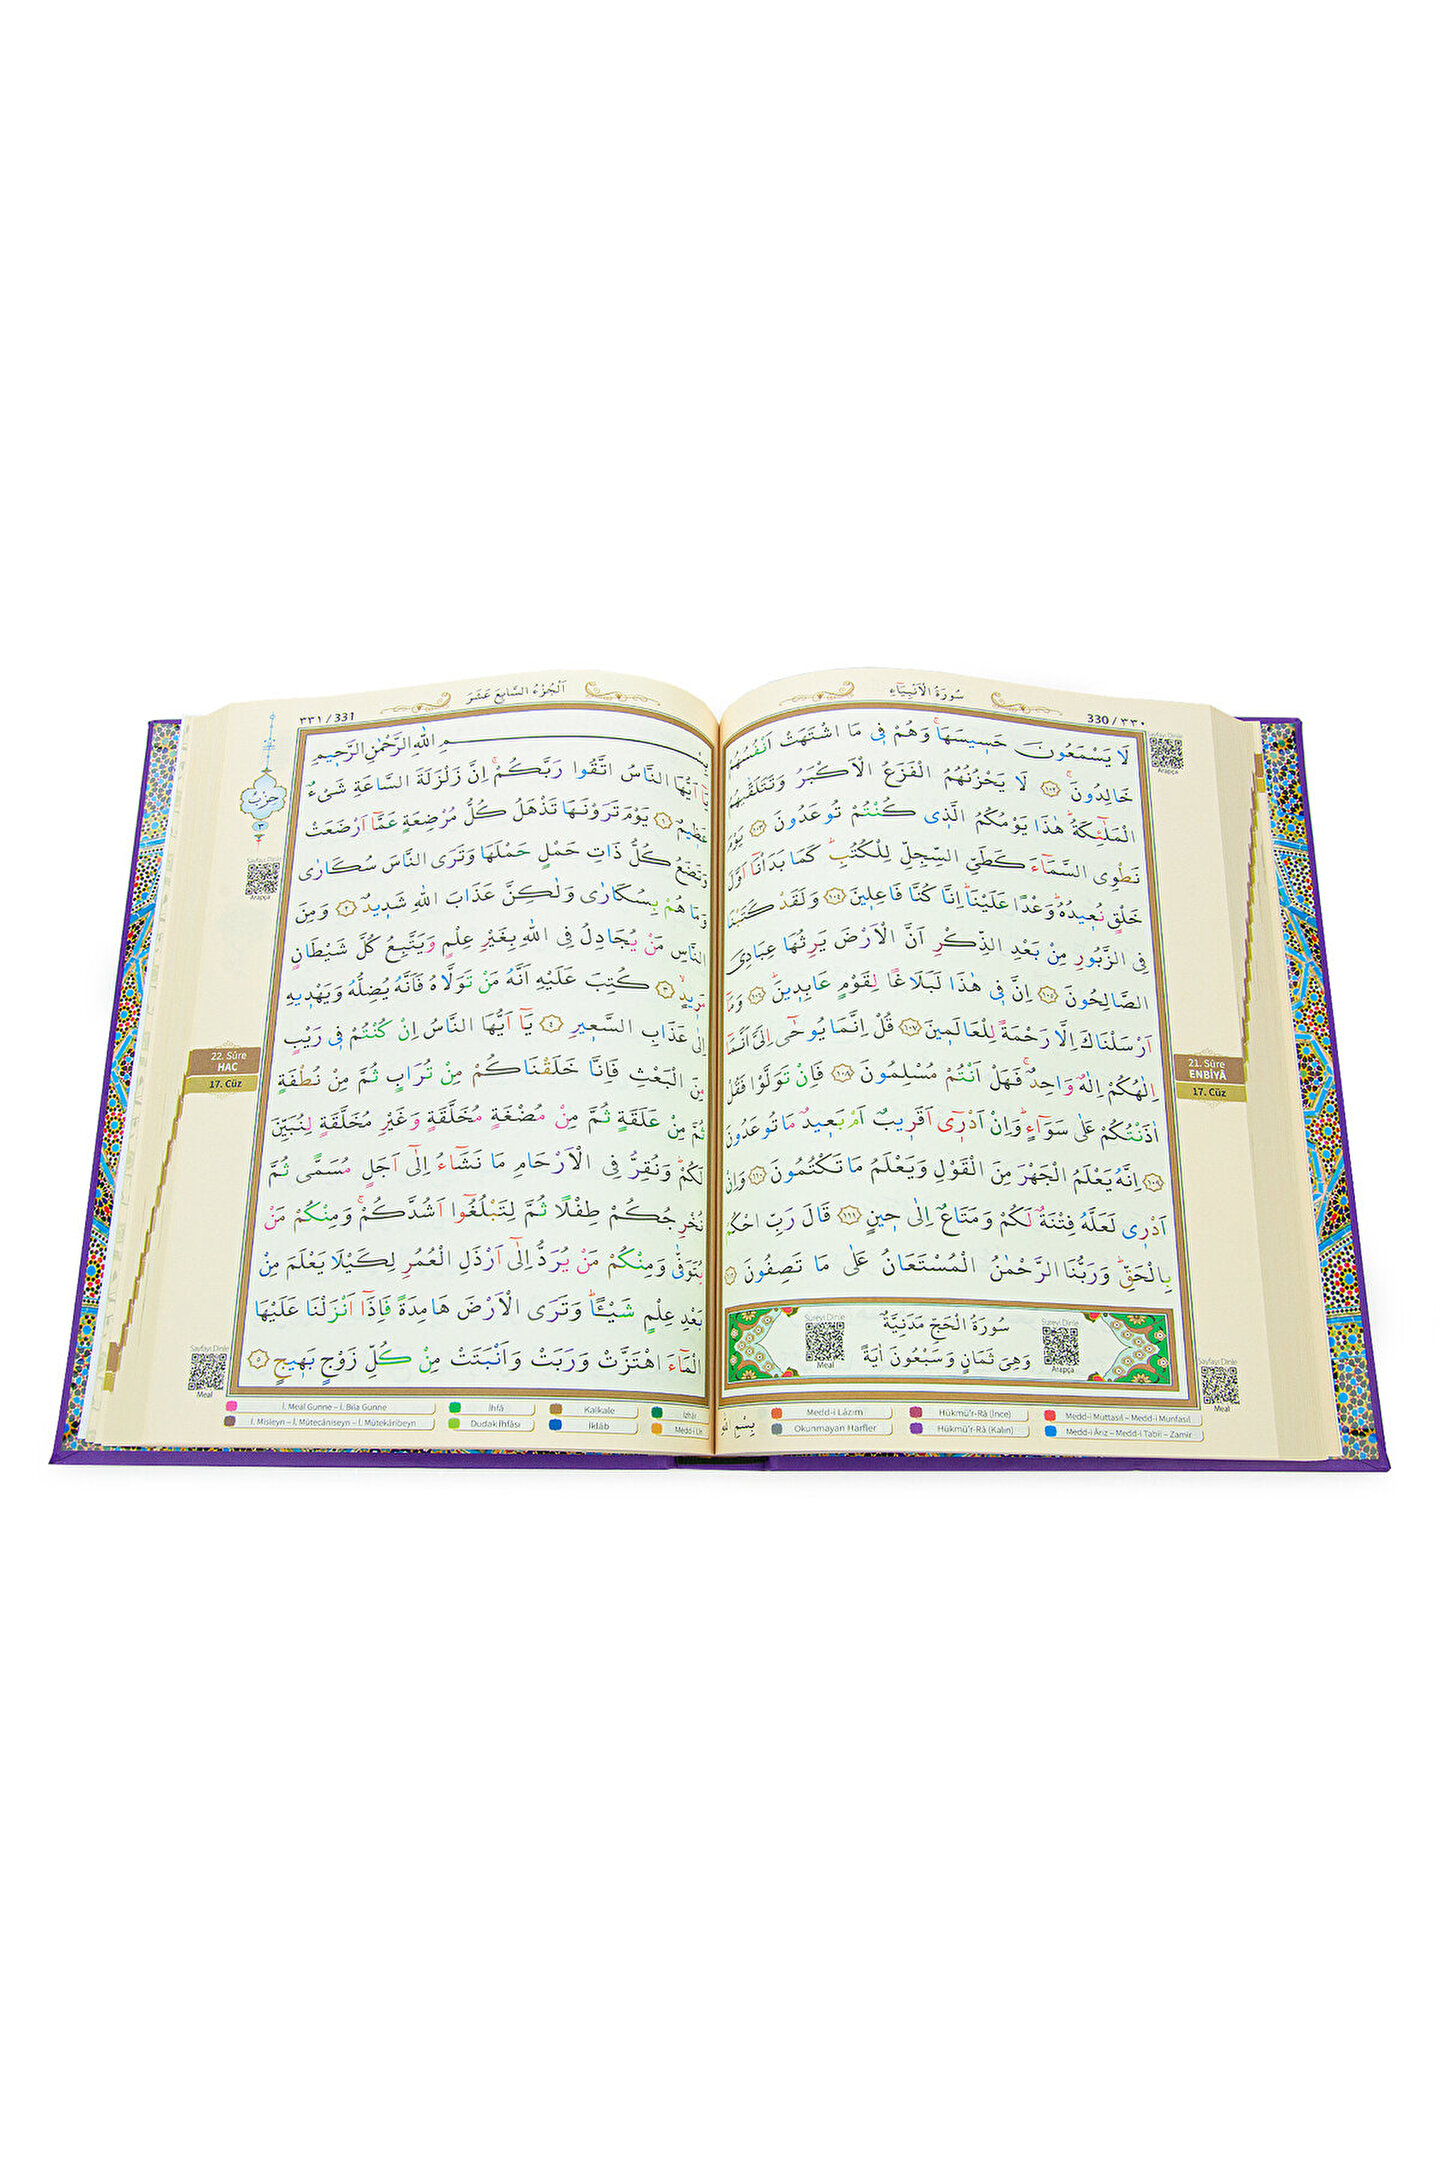 سُورَةُ الْاَنْبِيَاءِ
330 / ٣٣٠
لَا يَسْمَعُونَ حَسٖيسَهَاۚ وَهُمْ فٖى مَا اشْتَهَتْ اَنْفُسُهُمْ
خَالِدُونَۚ ﴿١٠٢﴾ لَا يَحْزُنُهُمُ الْفَزَعُ الْاَكْبَرُ وَتَتَلَقّٰيهُمُ
الْمَلٰٓئِكَةُؕ هٰذَا يَوْمُكُمُ الَّذٖى كُنْتُمْ تُوعَدُونَ ﴿١٠٣﴾ يَوْمَ
نَطْوِى السَّمَٓاءَ كَطَىِّ السِّجِلِّ لِلْكُتُبِؕ كَمَا بَدَاْنَٓا اَوَّلَ
خَلْقٍ نُعٖيدُهُؕ وَعْدًا عَلَيْنَاؕ اِنَّا كُنَّا فَاعِلٖينَ ﴿١٠٤﴾ وَلَقَدْ كَتَبْنَا
فِى الزَّبُورِ مِنْ بَعْدِ الذِّكْرِ اَنَّ الْاَرْضَ يَرِثُهَا عِبَادِىَ
الصَّالِحُونَ ﴿١٠٥﴾ اِنَّ فٖى هٰذَا لَبَلَاغًا لِقَوْمٍ عَابِدٖينَؕ ﴿١٠٦﴾ وَمَٓا
اَرْسَلْنَاكَ اِلَّا رَحْمَةً لِلْعَالَمٖينَ ﴿١٠٧﴾ قُلْ اِنَّمَا يُوحٰٓى اِلَىَّ اَنَّمَٓا
اِلٰهُكُمْ اِلٰهٌ وَاحِدٌۚ فَهَلْ اَنْتُمْ مُسْلِمُونَ ﴿١٠٨﴾ فَاِنْ تَوَلَّوْا فَقُلْ
اٰذَنْتُكُمْ عَلٰى سَوَٓاءٍؕ وَاِنْ اَدْرٖٓى اَقَرٖيبٌ اَمْ بَعٖيدٌ مَا تُوعَدُونَ
﴿١٠٩﴾ اِنَّهُ يَعْلَمُ الْجَهْرَ مِنَ الْقَوْلِ وَيَعْلَمُ مَا تَكْتُمُونَ ﴿١١٠﴾ وَاِنْ
اَدْرٖى لَعَلَّهُ فِتْنَةٌ لَكُمْ وَمَتَاعٌ اِلٰى حٖينٍ ﴿١١١﴾ قَالَ رَبِّ احْكُمْ
بِالْحَقِّؕ وَرَبُّنَا الرَّحْمٰنُ الْمُسْتَعَانُ عَلٰى مَا تَصِفُونَ ﴿١١٢﴾
سُورَةُ الْحَجِّ مَدَنِيَّةٌ
وَهِىَ ثَمَانٍ وَسَبْعُونَ اٰيَةً
Sureyi Dinle
Meal
Sureyi Dinle
Arapça
Sayfayı Dinle
Arapça
21. Sûre
ENBİYÂ
17. Cüz
Sayfayı Dinle
Meal
بِسْمِ اللّٰهِ
Medd-i Lâzım
Hükmü'r-Râ (İnce)
Medd-i Muttasıl – Medd-i Munfasıl
Okunmayan Harfler
Hükmü'r-Râ (Kalın)
Medd-i Ârız – Medd-i Tabîi – Zamir
اَلْجُزْءُ السَّابِعَ عَشَرَ
٣٣١ / 331
بِسْمِ اللّٰهِ الرَّحْمٰنِ الرَّحٖيمِ
يَٓا اَيُّهَا النَّاسُ اتَّقُوا رَبَّكُمْۚ اِنَّ زَلْزَلَةَ السَّاعَةِ شَىْءٌ
عَظٖيمٌ ﴿١﴾ يَوْمَ تَرَوْنَهَا تَذْهَلُ كُلُّ مُرْضِعَةٍ عَمَّٓا اَرْضَعَتْ
وَتَضَعُ كُلُّ ذَاتِ حَمْلٍ حَمْلَهَا وَتَرَى النَّاسَ سُكَارٰى
وَمَا هُمْ بِسُكَارٰى وَلٰكِنَّ عَذَابَ اللّٰهِ شَدٖيدٌ ﴿٢﴾ وَمِنَ
النَّاسِ مَنْ يُجَادِلُ فِى اللّٰهِ بِغَيْرِ عِلْمٍ وَيَتَّبِعُ كُلَّ شَيْطَانٍ
مَرٖيدٍۙ ﴿٣﴾ كُتِبَ عَلَيْهِ اَنَّهُ مَنْ تَوَلَّاهُ فَاَنَّهُ يُضِلُّهُ وَيَهْدٖيهِ
اِلٰى عَذَابِ السَّعٖيرِ ﴿٤﴾ يَٓا اَيُّهَا النَّاسُ اِنْ كُنْتُمْ فٖى رَيْبٍ
مِنَ الْبَعْثِ فَاِنَّا خَلَقْنَاكُمْ مِنْ تُرَابٍ ثُمَّ مِنْ نُطْفَةٍ
ثُمَّ مِنْ عَلَقَةٍ ثُمَّ مِنْ مُضْغَةٍ مُخَلَّقَةٍ وَغَيْرِ مُخَلَّقَةٍ لِنُبَيِّنَ
لَكُمْؕ وَنُقِرُّ فِى الْاَرْحَامِ مَا نَشَٓاءُ اِلٰٓى اَجَلٍ مُسَمًّى ثُمَّ
نُخْرِجُكُمْ طِفْلًا ثُمَّ لِتَبْلُغُٓوا اَشُدَّكُمْۚ وَمِنْكُمْ مَنْ
يُتَوَفّٰى وَمِنْكُمْ مَنْ يُرَدُّ اِلٰٓى اَرْذَلِ الْعُمُرِ لِكَيْلَا يَعْلَمَ مِنْ
بَعْدِ عِلْمٍ شَيْـًٔاؕ وَتَرَى الْاَرْضَ هَامِدَةً فَاِذَٓا اَنْزَلْنَا عَلَيْهَا
الْمَٓاءَ اهْتَزَّتْ وَرَبَتْ وَاَنْبَتَتْ مِنْ كُلِّ زَوْجٍ بَهٖيجٍ ﴿٥﴾
حِزْبٌ
٣
Sayfayı Dinle
Arapça
22. Sûre
HAC
17. Cüz
Sayfayı Dinle
Meal
İ. Meal Gunne – İ. Bila Gunne
İhfâ
Kalkale
İzhâr
İ. Misleyn – İ. Mütecâniseyn – İ. Mütekâribeyn
Dudak İhfâsı
İklâb
Medd-i Lîn